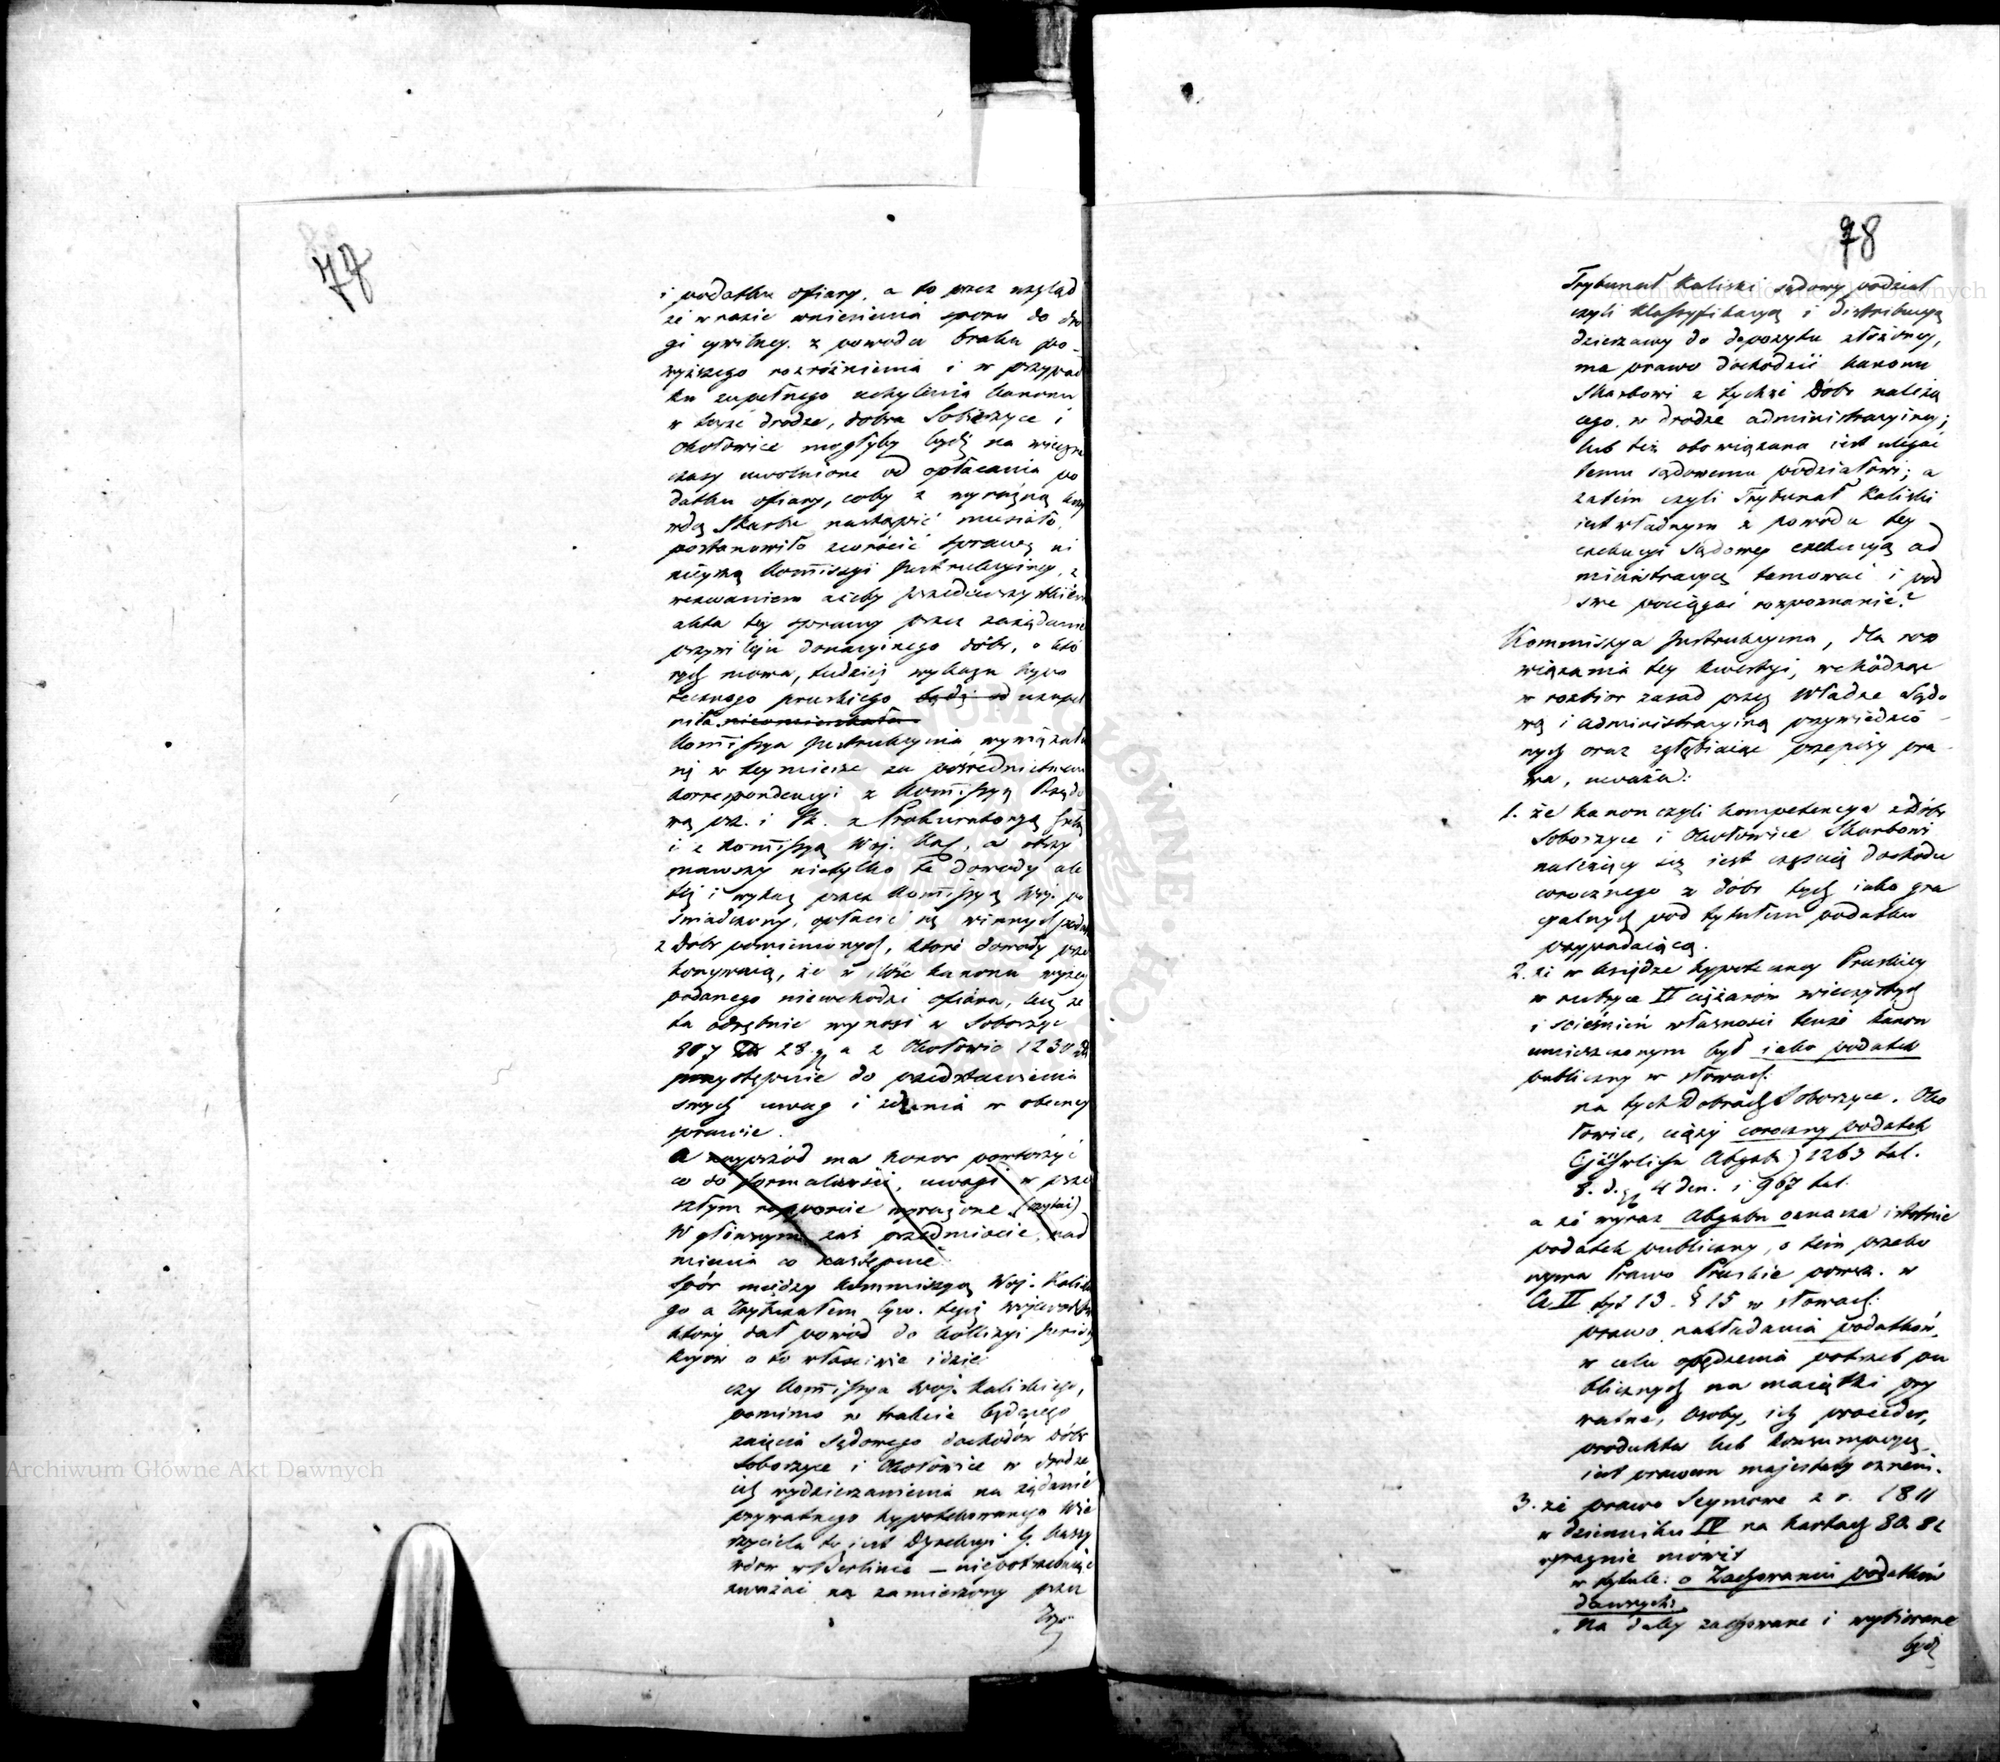 77
i podatku ofiary, a to przez wzgląd
że w razie wniesienia sporu do dro
gi cywilney z powodu braku po-
wyższego rozróżnienia i w przypad
ku zupełnego uchylenia kanonu
w teyże drodze, dobra Soborzyce i
Chołowice mogłyby bydź na wieczne
czasy uwolnione od opłacania po
datku ofiary, coby z wyraźną krzy
wdą Skarbu nastąpić musiało,
postanowiło zwrócić sprawę ni
nieyszą Kommissyi Instrukcyiney, z
wezwaniem ażeby przedewszystkiem
akta tey sprawy przez zażądanie
przywileju donacyinego dóbr, o któ
rych mowa, tudzież wykazu hypo
tecznego pruskiego uzupeł
niła.
Kommissya Instrukcyina wywiązała
się w tey mierze za pośrednictwem
korrespondencyi z Kommissyą Rządo
wą prz. i Sk. z Prokuratoryą
i z Kommissyą Woj. Kal., a otrzy
mawszy nietylko te dowody ale
też i wykaz przez Kommissyą Woj. po
świadczony, opłacić się winnych
z dóbr pomienionych, które dowody prze
konywaią, że w ilość kanonu wyżey
podanego niewchodzi ofiara, lecz że
ta odrębnie wynosi z Soborzyc
807 Zł 28 gr a z Chołowic 1230
przystępuie do przedstawienia
swych uwag i zdania w obecney
sprawie.
A nayprzód ma honor powtórzyć
co do formalności, uwagi w prze
szłym rapporcie wyrażone (czytać)
W głównym zaś przedmiocie, nad
mienia co następuie
Spór między Kommissyą Woj. Kalisk
go a Trybunałem Cyw. tegoż województwa
który dał powód do kollizyi Juris
o to właściwie idzie:
czy Kommissya Woj. Kaliskiego,
pomimo w trakcie będącego
zajęcia sądowego dochodów dóbr
Soborzyce i Chołowice w drodze
ich wydzierżawienia na żądanie
prywatnego hypotekowanego Wie
rzyciela to jest Dyrekcyi G. Kassy
wdów w Berlinie — niepotrzebuiąc
zważać na zamierzony przez
Try-
78
Trybunał Kaliski sądowy podział
czyli klassyfikacyą i distribucyą
dzierżawy do depozytu złożoney,
ma prawo dochodzić kanonu
Skarbowi z tychże dóbr należą
cego w drodze administracyiney;
lub też obowiązana iest ulegać
temu sądowemu podziałowi; a
zatem czyli Trybunał Kaliski
iest władnym z powodu tey
exekucyi Sądowey exekucyą ad
ministracyą tamować i pod
swe pociągać rozpoznanie?
Kommissya Instrukcyina, dla roz
wiązania tey kwestyi, wchodząc
w rozbiór zasad przez Władze Sądo
wą i administracyiną przywiedzio-
nych oraz zgłębiaiąc przepisy pra-
wa, uważa:
1. że kanon czyli kompetencya z dóbr
Soborzyce i Chołowice Skarbowi
należący się iest częścią dochodu
corocznego z dóbr tych iako gra
cyalnych pod tytułem podatku
przypadaiącą.
2. że w księdze hypoteczney Pruskiey
w rubryce II ciężarów wieczystych
i ścieśnień własności tenże kanon
umieszczonym był iako podatek
publiczny w słowach:
na tych Dobrach Soborzyce, Cho
łowice, ciąży coroczny podatek
(jährliche Abgabe) 1263 tal.
8. d.gr 4 den. i 967 tal.
a że wyraz Abgabe oznacza istotnie
podatek publiczny, o tem przeko
nywa Prawo Pruskie powsz. w
Cz. II tyt 13. § 15 w słowach:
prawo nakładania podatków,
w celu opędzenia potrzeb pu
blicznych na maiątki pry
watne, osoby, ich proceder,
produkta lub konsumpcyą
iest prawem majestaty.
3. że prawo Seymowe z r. 1811
w dzienniku IV na kartach 80. 81
wyraźnie mówi
w tytule: o Zachowaniu podatków
dawnych:
„Na daley zachowane i wybierane
bydź